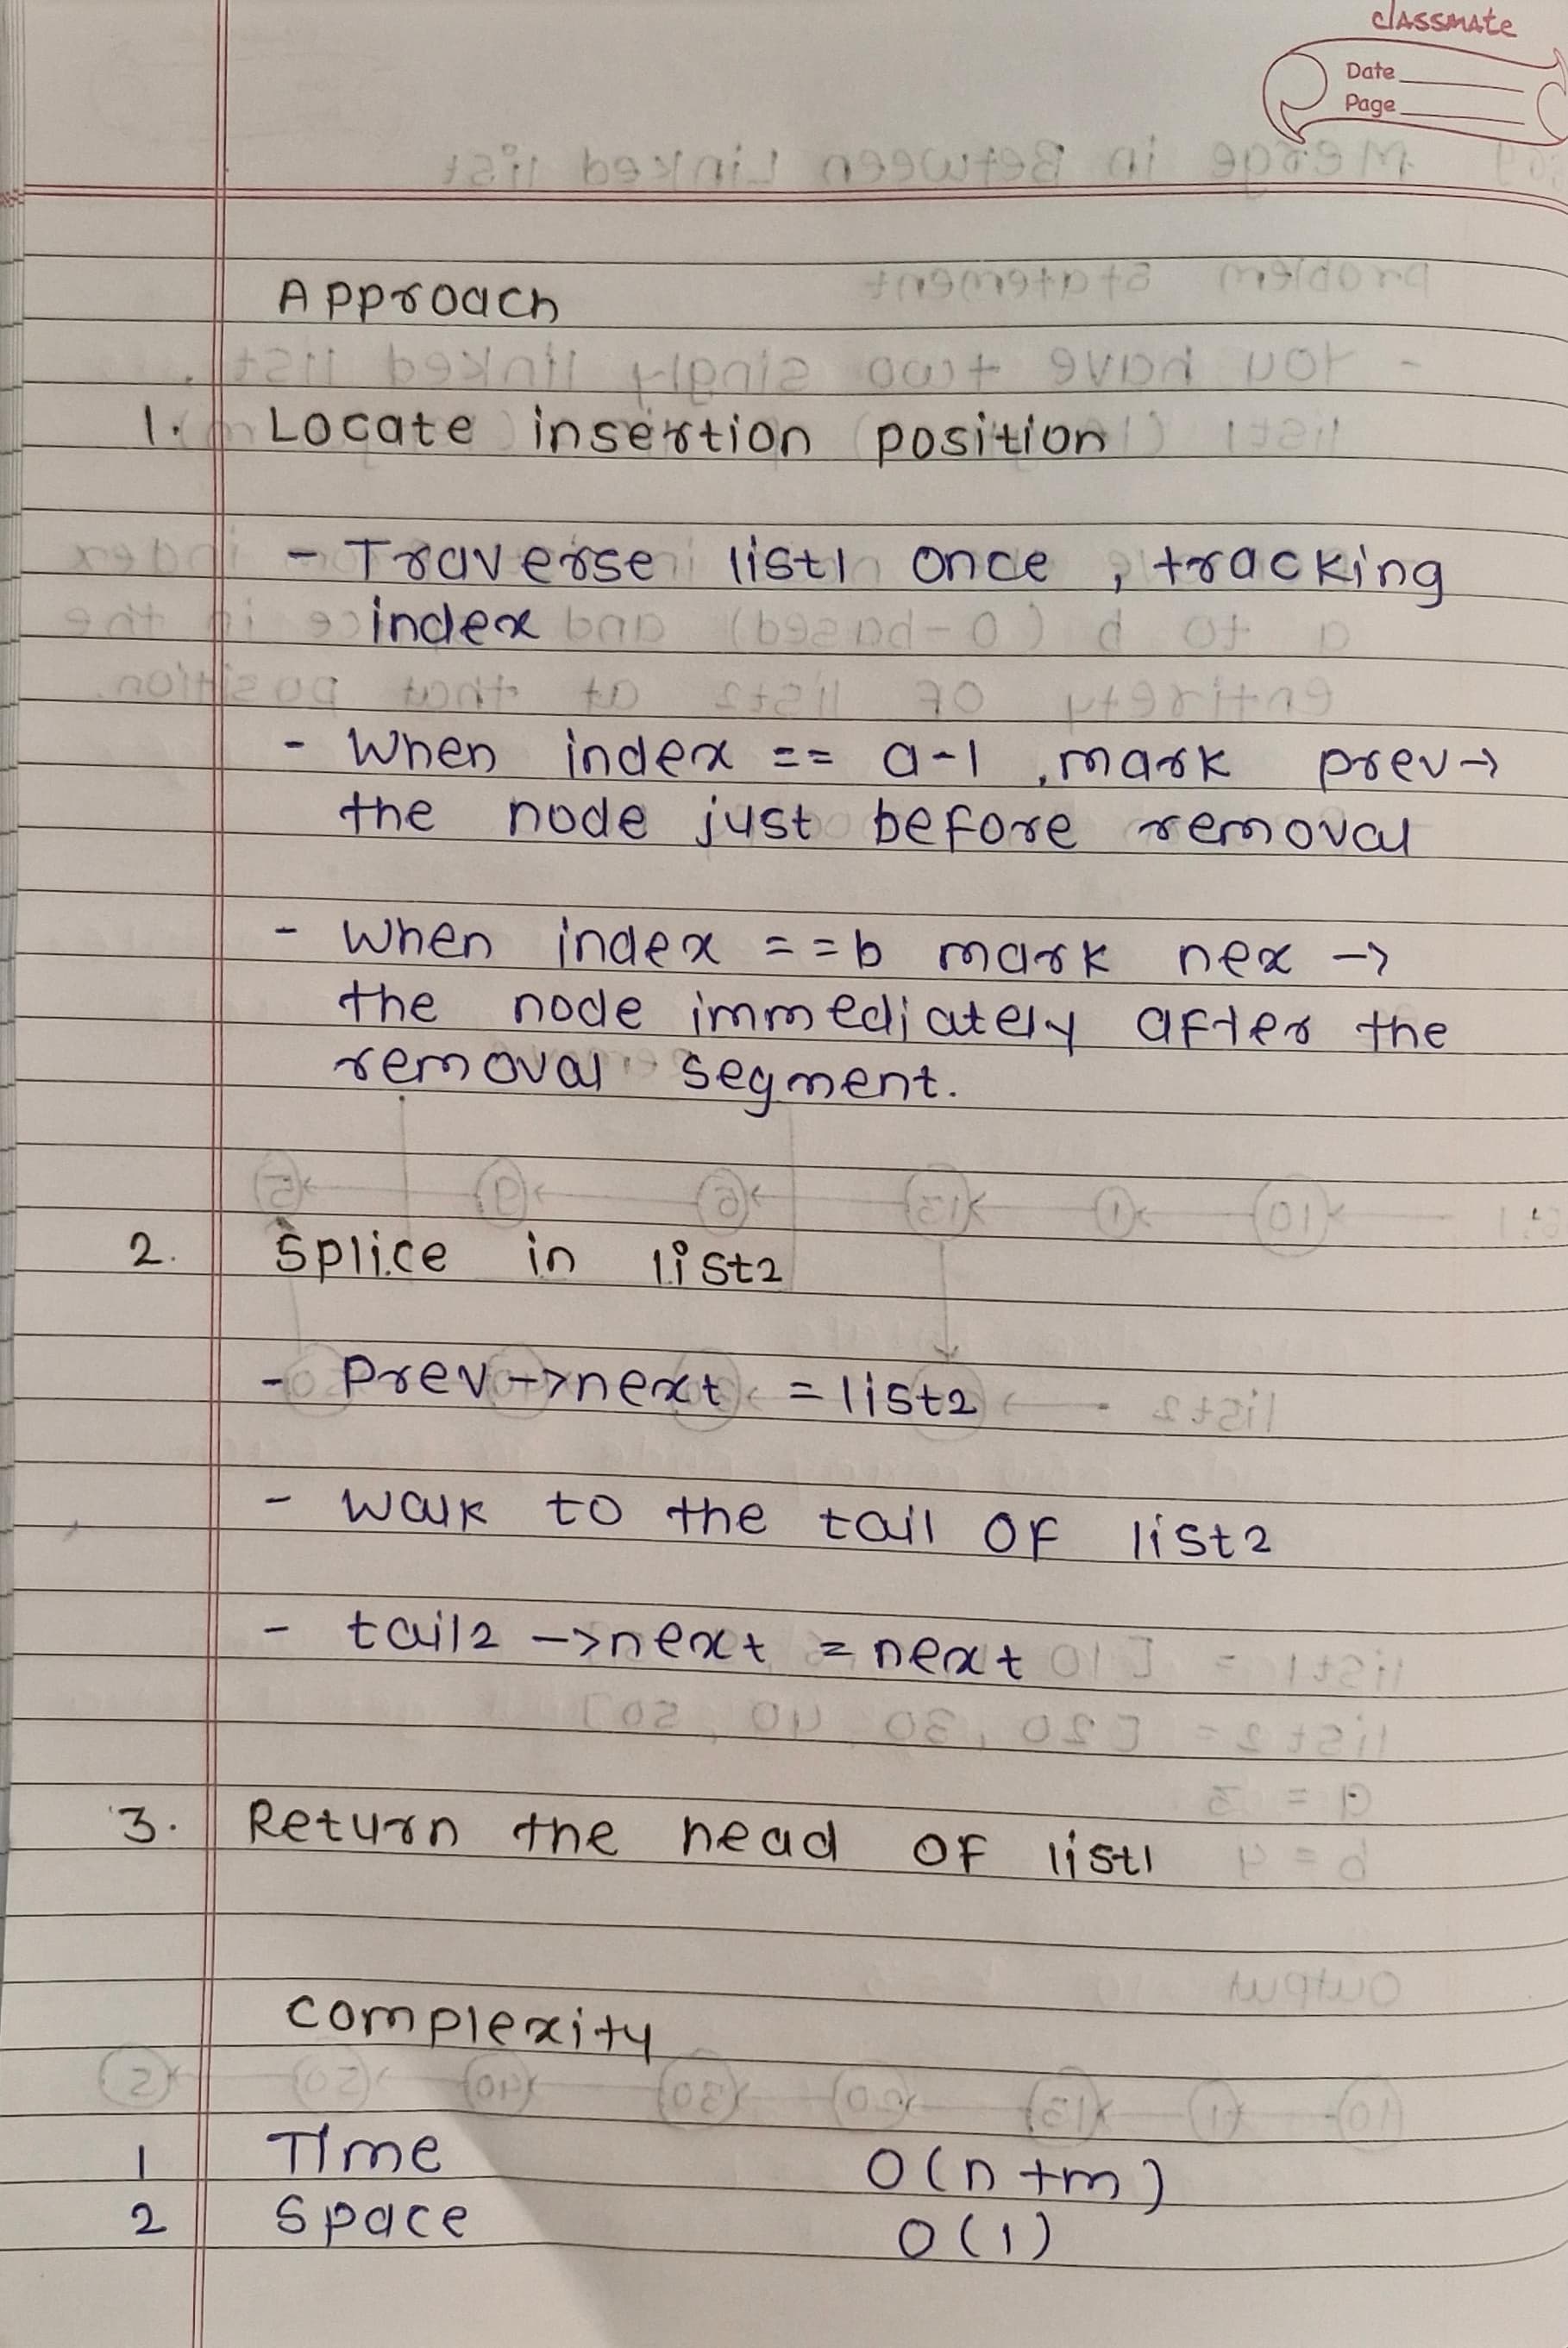 classmate
Date
Page
Approach
1. Locate insertion position
- Traverse list1 once , tracking
index
- When index == a-1 , mark prev →
the node just before removal
- When index ==b mark nex →
the node immediately after the
removal segment.
2. Splice in list2
- Prev->next = list2
- Walk to the tail of list2
- tail2 ->next = next
3. Return the head of list1
Complexity
1 Time O(n+m)
2 Space O(1)